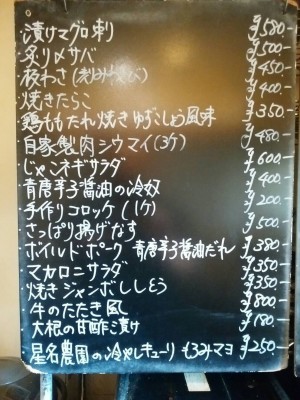 漬けマグロ刺 ¥580-
炙り〆サバ ¥500-
板わさ(刻みわさび) ¥450-
焼きたらこ ¥400-
鶏ももたれ焼きゆずしょう風味 ¥350-
自家製肉シウマイ(3ケ) ¥480-
じゃこネギサラダ ¥600-
青唐辛子醤油の冷奴 ¥400-
手作りコロッケ(1ケ) ¥200-
さっぱり揚げなす ¥500-
ボイルドポーク 青唐辛子醤油だれ ¥380-
マカロニサラダ ¥350-
焼きジャンボししとう ¥350-
牛のたたき風 ¥800-
大根の甘酢漬け ¥180-
星名農園の冷やしキューリ もろみマヨ ¥250-